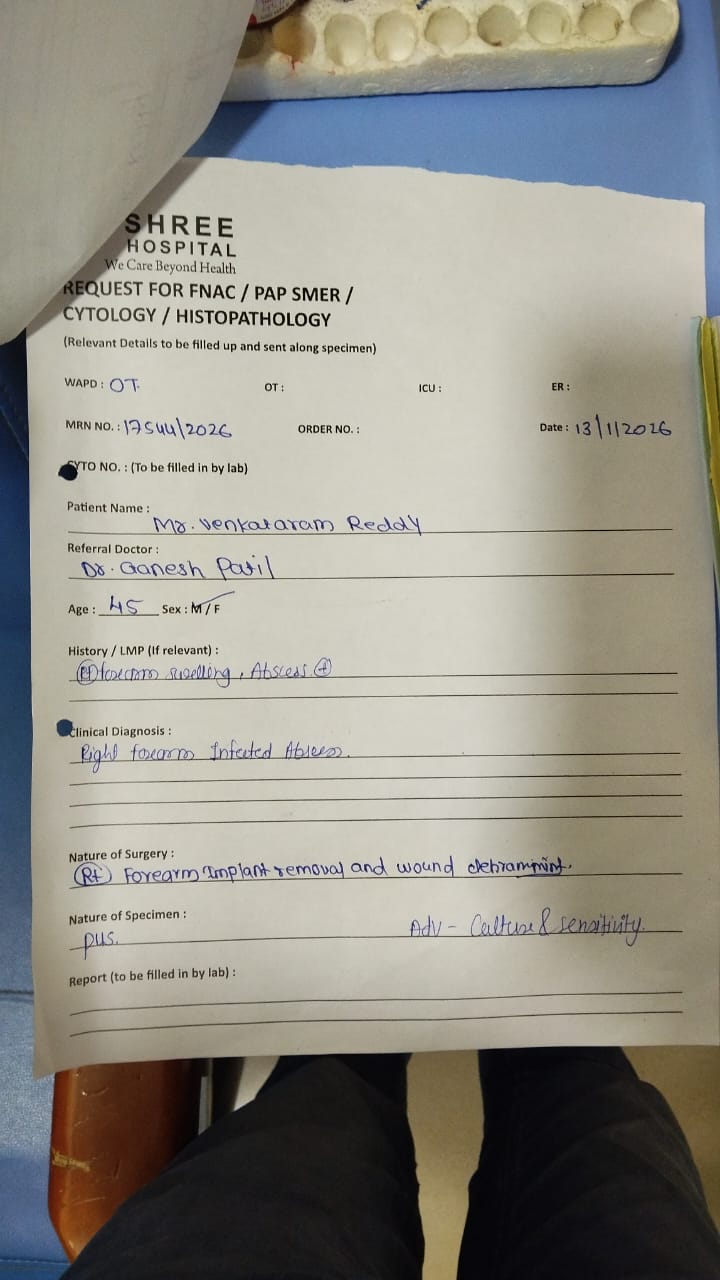 SHREE
HOSPITAL
We Care Beyond Health
REQUEST FOR FNAC / PAP SMER /
CYTOLOGY / HISTOPATHOLOGY
(Relevant Details to be filled up and sent along specimen)
WAPD : OT. OT : ICU : ER :
MRN NO. : 17544/2026 ORDER NO. : Date : 13/1/2026
CYTO NO. : (To be filled in by lab)
Patient Name :
Mr. Venkataram Reddy
Referral Doctor :
Dr. Ganesh Patil
Age : 45 Sex : M / F
History / LMP (If relevant) :
(Rt) forearm swelling, Abscess (+)
Clinical Diagnosis :
Right forearm Infected Abscess.
Nature of Surgery :
(Rt) Forearm Implant removal and wound
Nature of Specimen :
pus. Adv - Culture & sensitivity.
Report (to be filled in by lab) :